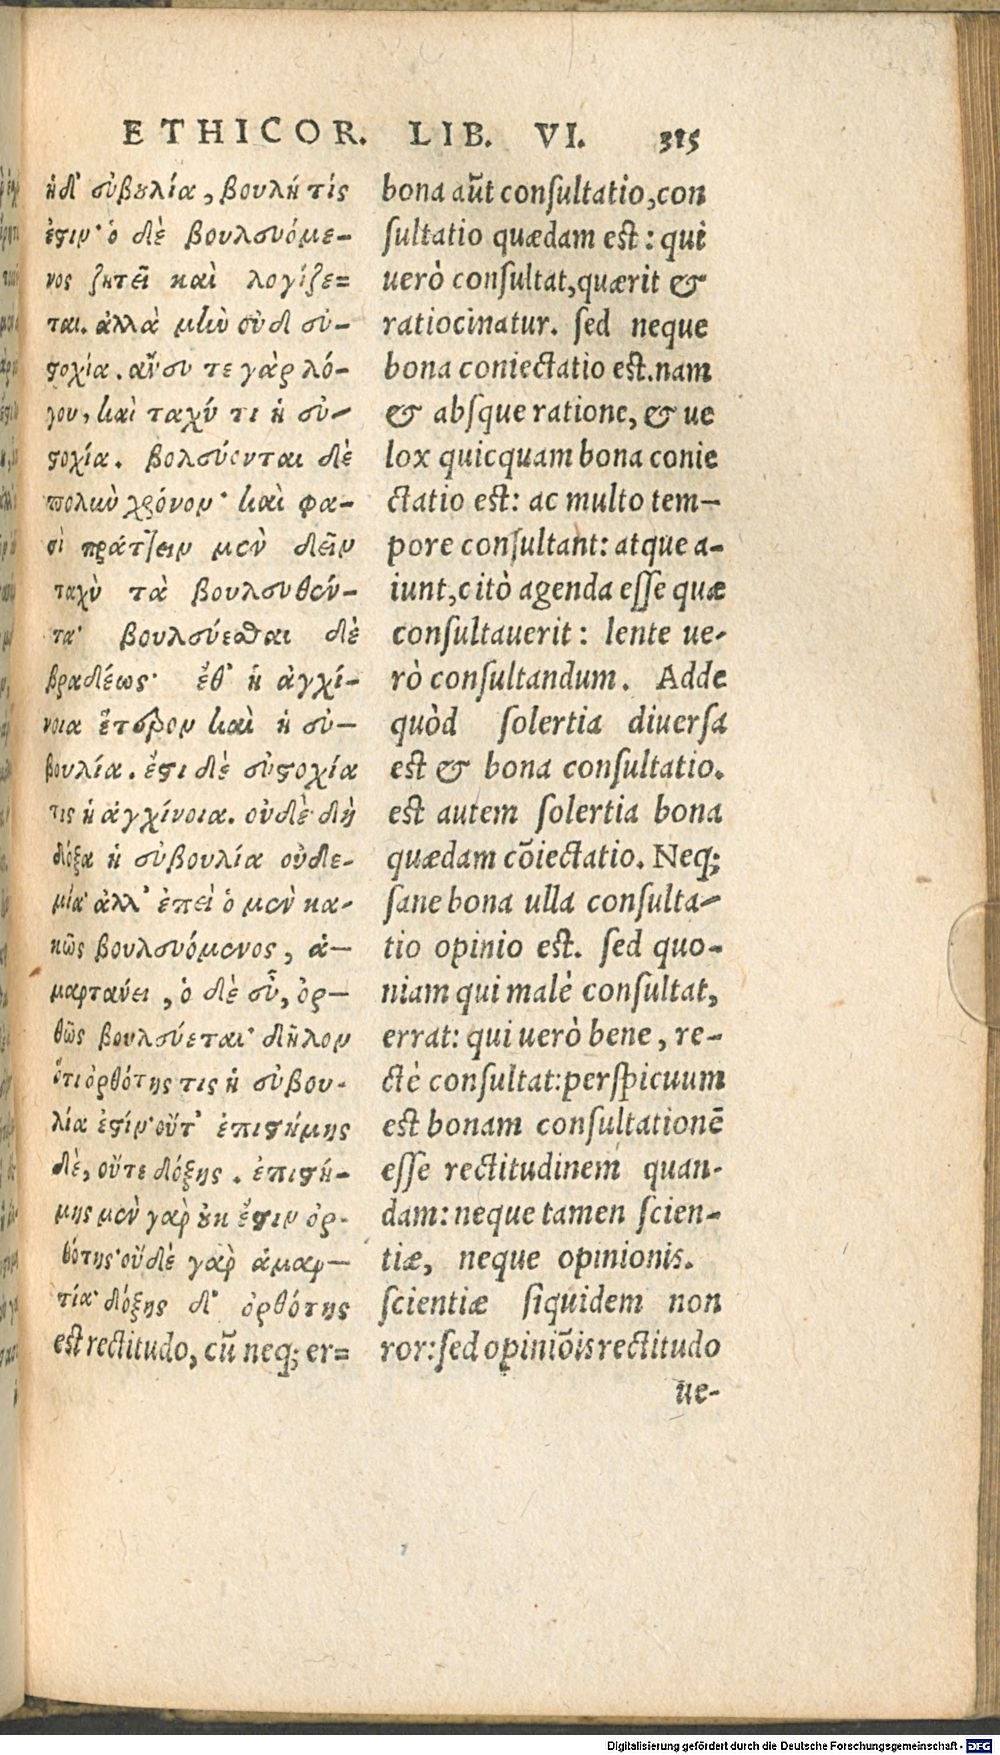 ETHICOR. LIB. VI. 315
ἡ δ' εὐβουλία, βουλή τίς
ἐστιν· ὁ δὲ βουλευόμε-
νος ζητεῖ καὶ λογίζε=
ται. ἀλλὰ μὴν οὐδ' εὐ-
στοχία. ἄνευ τε γὰρ λό-
γου, καὶ ταχύ τι ἡ εὐ-
στοχία. βολεύονται δὲ
πολὺν χρόνον· καὶ φα-
σὶ πράττειν μὲν δεῖν
ταχὺ τὰ βουλευθέν-
τα· βουλεύεσθαι δὲ
βραδέως· ἔθ' ἡ ἀγχί-
νοια ἕτερον καὶ ἡ εὐ-
βουλία. ἔστι δὲ εὐστοχία
τις ἡ ἀγχίνοια. οὐδὲ δὴ
δόξα ἡ εὐβουλία οὐδε-
μία· ἀλλ' ἐπεὶ ὁ μὲν κα-
κῶς βουλευόμενος, ἁ-
μαρτάνει, ὁ δὲ εὖ, ὀρ-
θῶς βουλεύεται· δῆλον
ὅτι ὀρθότης τις ἡ εὐβου-
λία ἐστίν· οὔτ' ἐπιστήμης
δὲ, οὔτε δόξης. ἐπιστή-
μης μὲν γὰρ οὐκ ἔστιν ὀρ-
θότης· οὐδὲ γὰρ ἁμαρ-
τία· δόξης δ' ὀρθότης
est rectitudo, cū neq; er=
bona aūt consultatio, con
sultatio quædam est: qui
uerò consultat, quærit &
ratiocinatur. sed neque
bona coniectatio est. nam
& absque ratione, & ue
lox quicquam bona conie
ctatio est: ac multo tem-
pore consultant: atque a-
iunt, citò agenda esse quæ
consultauerit: lente ue-
rò consultandum. Adde
quòd solertia diuersa
est & bona consultatio.
est autem solertia bona
quædam cōiectatio. Neq;
sane bona ulla consulta-
tio opinio est. sed quo-
niam qui malè consultat,
errat: qui uerò bene, re-
ctè consultat: perspicuum
est bonam consultationē
esse rectitudinem quan-
dam: neque tamen scien-
tiæ, neque opinionis.
scientiæ siquidem non
ror: sed opiniōis rectitudo
ue-
Digitalisierung gefördert durch die Deutsche Forschungsgemeinschaft - DFG